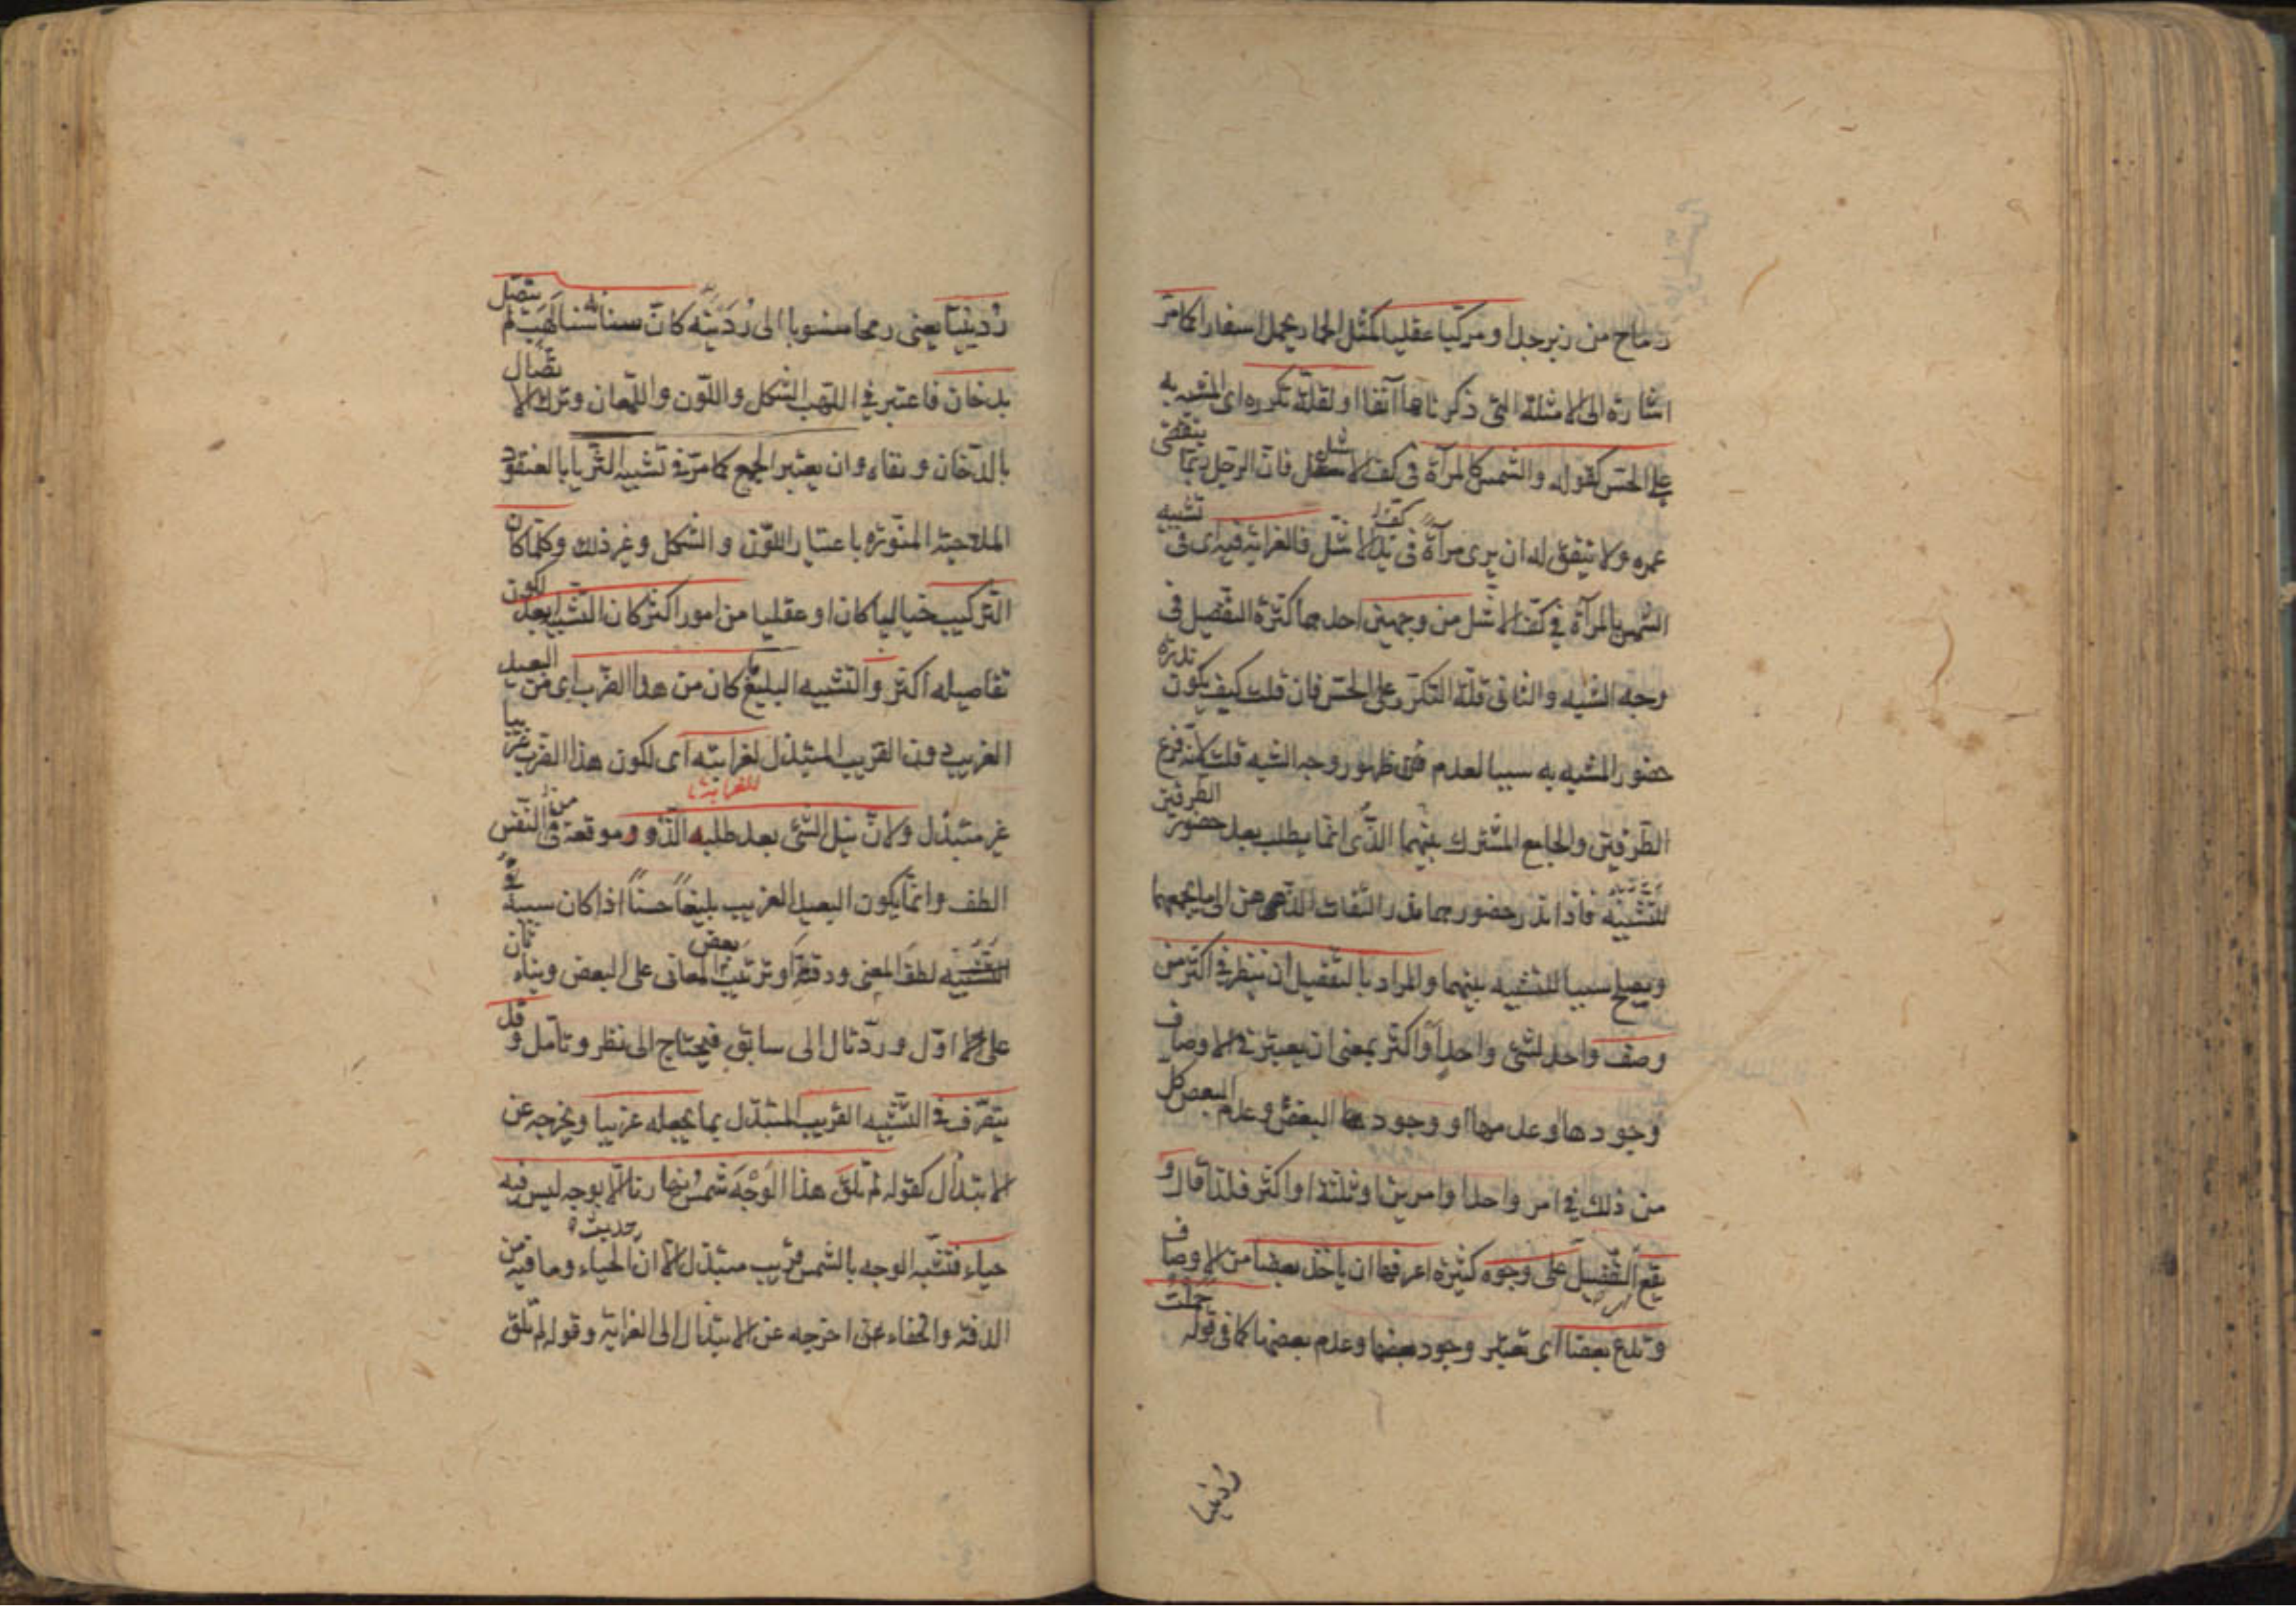 رماح من زبرجد او مركبا عقليا كمثل الحمار يحمل اسفارا كما مر
اشارة الى الامثلة التى ذكرناها آنفا او لقلة تكرره اى المشبه به
على الحس كقوله والشمس كالمرآة فى كف الاشل فان الرجل ربما ينقضى
عمره ولا يتفق له ان يرى مرآة فى كف الاشل فالغرابة فيه اى فى تشبيه
الشمس بالمرآة فى كف الاشل من وجهين احدهما كثرة التفصيل فى
وجه الشبه والثانى قلة التكرر على الحس فان قلت كيف يكون ندرة
حضور المشبه به سببا لعدم ظهور وجه الشبه قلت لانه فرع
الطرفين والجامع المشترك بينهما الذى انما يطلب بعد حضور الطرفين
للتشبيه فاذا ندر حضورهما ندر التفات الذهن الى ما يجمعهما
ويصلح سببا للتشبيه بينهما والمراد بالتفصيل ان ينظر فى اكثر من
وصف واحد لشئ واحد او اكثر بمعنى ان يعتبر فى الاوصاف
وجودها او عدمها او وجود البعض وعدم البعض كل
من ذلك فى امر واحد او امرين او ثلثة او اكثر فلذا قال و
يقع التفصيل على وجوه كثيرة اعرفها ان ياخذ بعضا من الاوصاف
وتدع بعضا اى تعتبر وجود بعضها وعدم بعضها كما فى قوله حملت
ردينيا
ردينيا يعنى رمحا منسوبا الى ردينة كان سنانه سنا لهب لم يتصل
بدخان فاعتبر فى اللهب الشكل واللون واللمعان وترك الاتصال
بالدخان ونفاه وان يعتبر الجميع كما مر فى تشبيه الثريا بالعنقود
الملاحية المنورة باعتبار اللون والشكل وغير ذلك وكلما كان
التركيب خياليا كان او عقليا من امور اكثر كان التشبيه ابعد لكون
تفاصيله اكثر والتشبيه البليغ كان من هذا الضرب اى من البعيد
الغريب دون القريب المبتذل لغرابته اى لكون هذا الضرب غريبا
للغرابة
غير مبتذل ولان نيل الشئ بعد طلبه الذ وموقعه من النفس
الطف وانما يكون البعيد الغريب بليغا حسنا اذا كان سببه
لطف المعنى ودقته او ترتيب بعض المعانى على البعض وبناء ثان
على اول ورد تال الى سابق فيحتاج الى نظر وتأمل وقد
يتصرف فى التشبيه القريب المبتذل بما يجعله غريبا ويخرجه عن
الابتذال كقوله لم تلق هذا الوجه شمس نهارنا الا بوجه ليس فيه
حياء فتشبيه الوجه بالشمس قريب مبتذل الا ان حديث الحياء وما فيه من
الدقة والخفاء اخرجه عن الابتذال الى الغرابة وقوله لم تلق